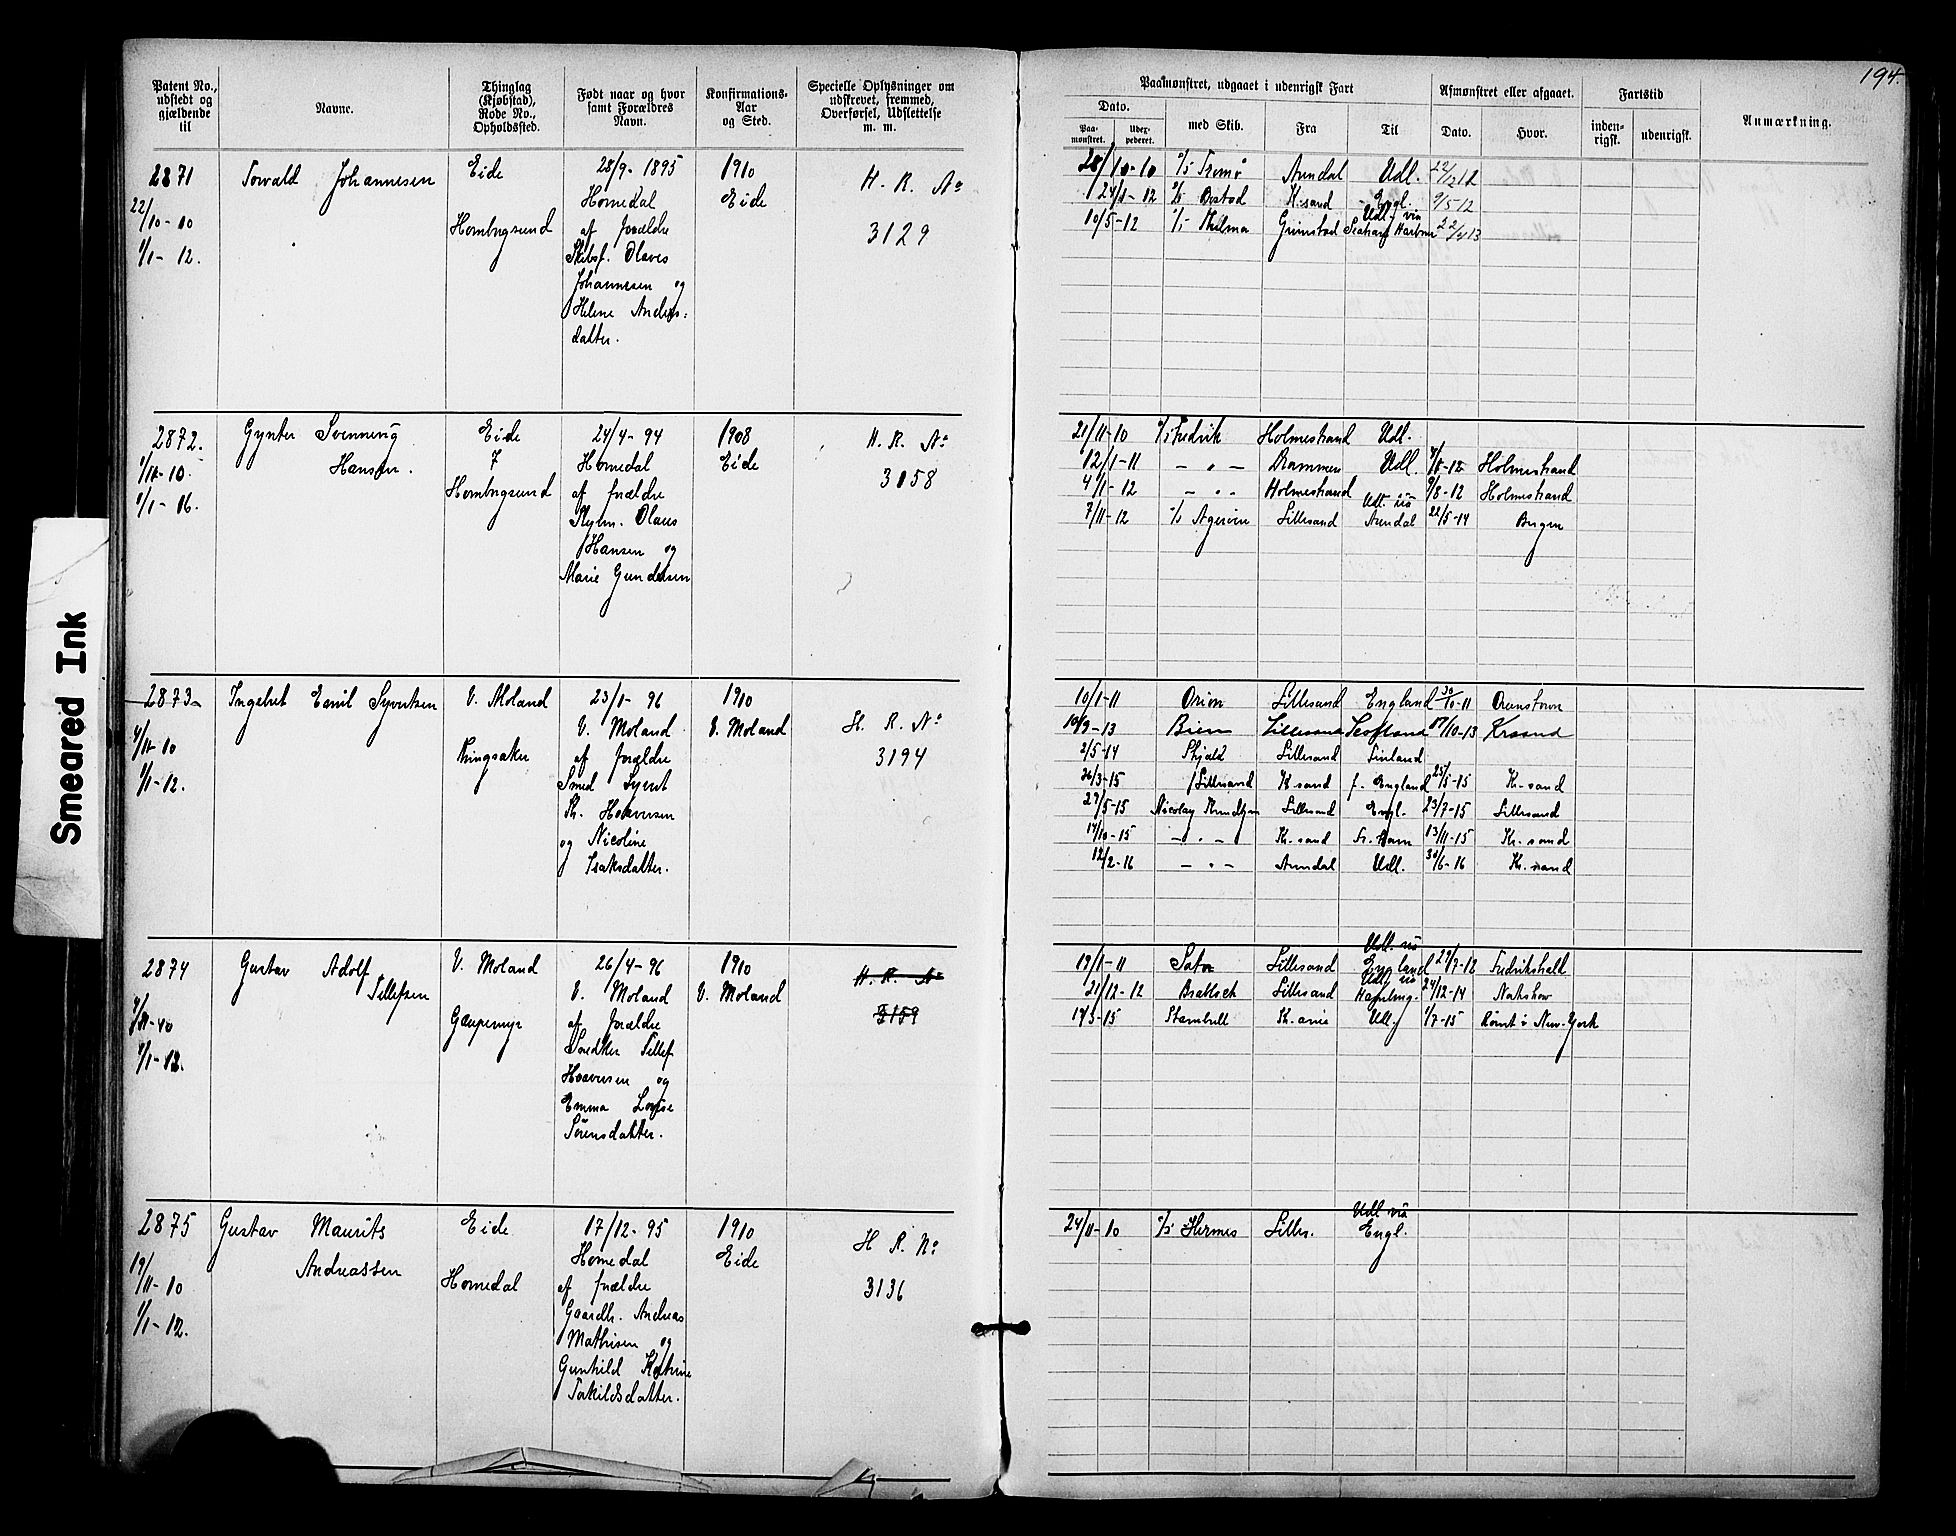 194.
Patent No., udstedt og gjældende til
Navne.
Thinglag (Kjøbstad), Rode No., Opholdssted.
Født naar og hvor samt Forældres Navn.
Konfirmations-Aar og Sted.
Specielle Oplysninger om udskrevet, fremmed, Overførsel, Udslettelse m. m.
Paamønstret, udgaaet i udenrigsk Fart
Dato.
Paa-mønstret.
Udex-pederet.
med Skib.
Fra
Til
Afmønstret eller afgaaet.
Dato.
Hvor.
Fartstid
inden-rigsk.
udenrigsk.
Anmærkning.
2871
22/10-10
1/1-12.
Torvald Johannesen
Eide
Hombrgsund
28/9-1895
Homedal
af forældre
Skibsf. Olaves
Johannesen og
Helene Anders:
datter.
1910
Eide
H. R. No
3129
28/10-10 Tromø Arendal Udl. 22/12 12
24/1-12 K.sand Engl. 9/5-12
10/5-12 Thelma Grimstad Udl. via Harbour 22/4 13
2872.
1/11-10.
1/1-16.
Gynter Svenning
Hansen.
Eide
7
Hombrgsund
24/4-94
Homedal
af forældre
Olaves
Hansen og
Marie Gundersen
1908
Eide
H. R. No
3158
21/11-10 Fredrik Holmestrand Udl.
12/1-11 - " - Drammen Udl. Holmestrand
4/1-12 - " - Holmestrand 9/8-12 Holmestrand
7/11-12 Lillesand Udl. via Arendal 22/5-14 Bergen
2873
4/11-10
1/1-12.
Ingebret Emil Syvertsen
V. Moland
Kingsaker
23/1-96
V. Moland
af forældre
Smed Syvert
Th. Haavorsen
og Nicoline
Isaksdatter.
1910
V. Moland
H. R. No
3194
10/1-11 Orion Lillesand England 30/10-11
10/9-13 Bien Lillesand Scotland 17/10-13 Krsand
2/5-14 Skjald Lillesand Finland
26/3-15 Lillesand K sand f. England 25/5-15 Kr.sand
29/5-15 Nicolay Knudtzon Lillesand Engl. 23/7-15 Lillesand
14/10-15 - " - Kr.sand 13/11-15 Kr.sand
12/2-16 - " - Arendal Udl. 30/6-16 Kr.sand
2874
1/1-12.
Gustav Adolf
Tellefsen
V. Moland
Gaupemyr
26/4-96
V. Moland
af forældre
Tellef
Haavorsen og
Emma Lovise
Sörensdatter.
1910
V. Moland
H. R. No
3159
19/1-11 Sato Lillesand Udl. via England 29/7-12 Fredrikshald
21/12-12 Lillesand Udl. via Hamburg. 24/12-14 Nakskov
Kr.ania Udl. 1/7-15 Rømt i New-York
2875
19/11-10
1/1-12.
Gustav Maurits
Andreassen
Eide
Homedal
17/12-95
Homedal
af forældre
Gaardbr. Andreas
Mathisen og
Gunhild Katrine
Takildsdatter.
1910
Eide
H R. No
3136
24/11-10 Hermes Lilles. Udl via Engl.
Smeared Ink